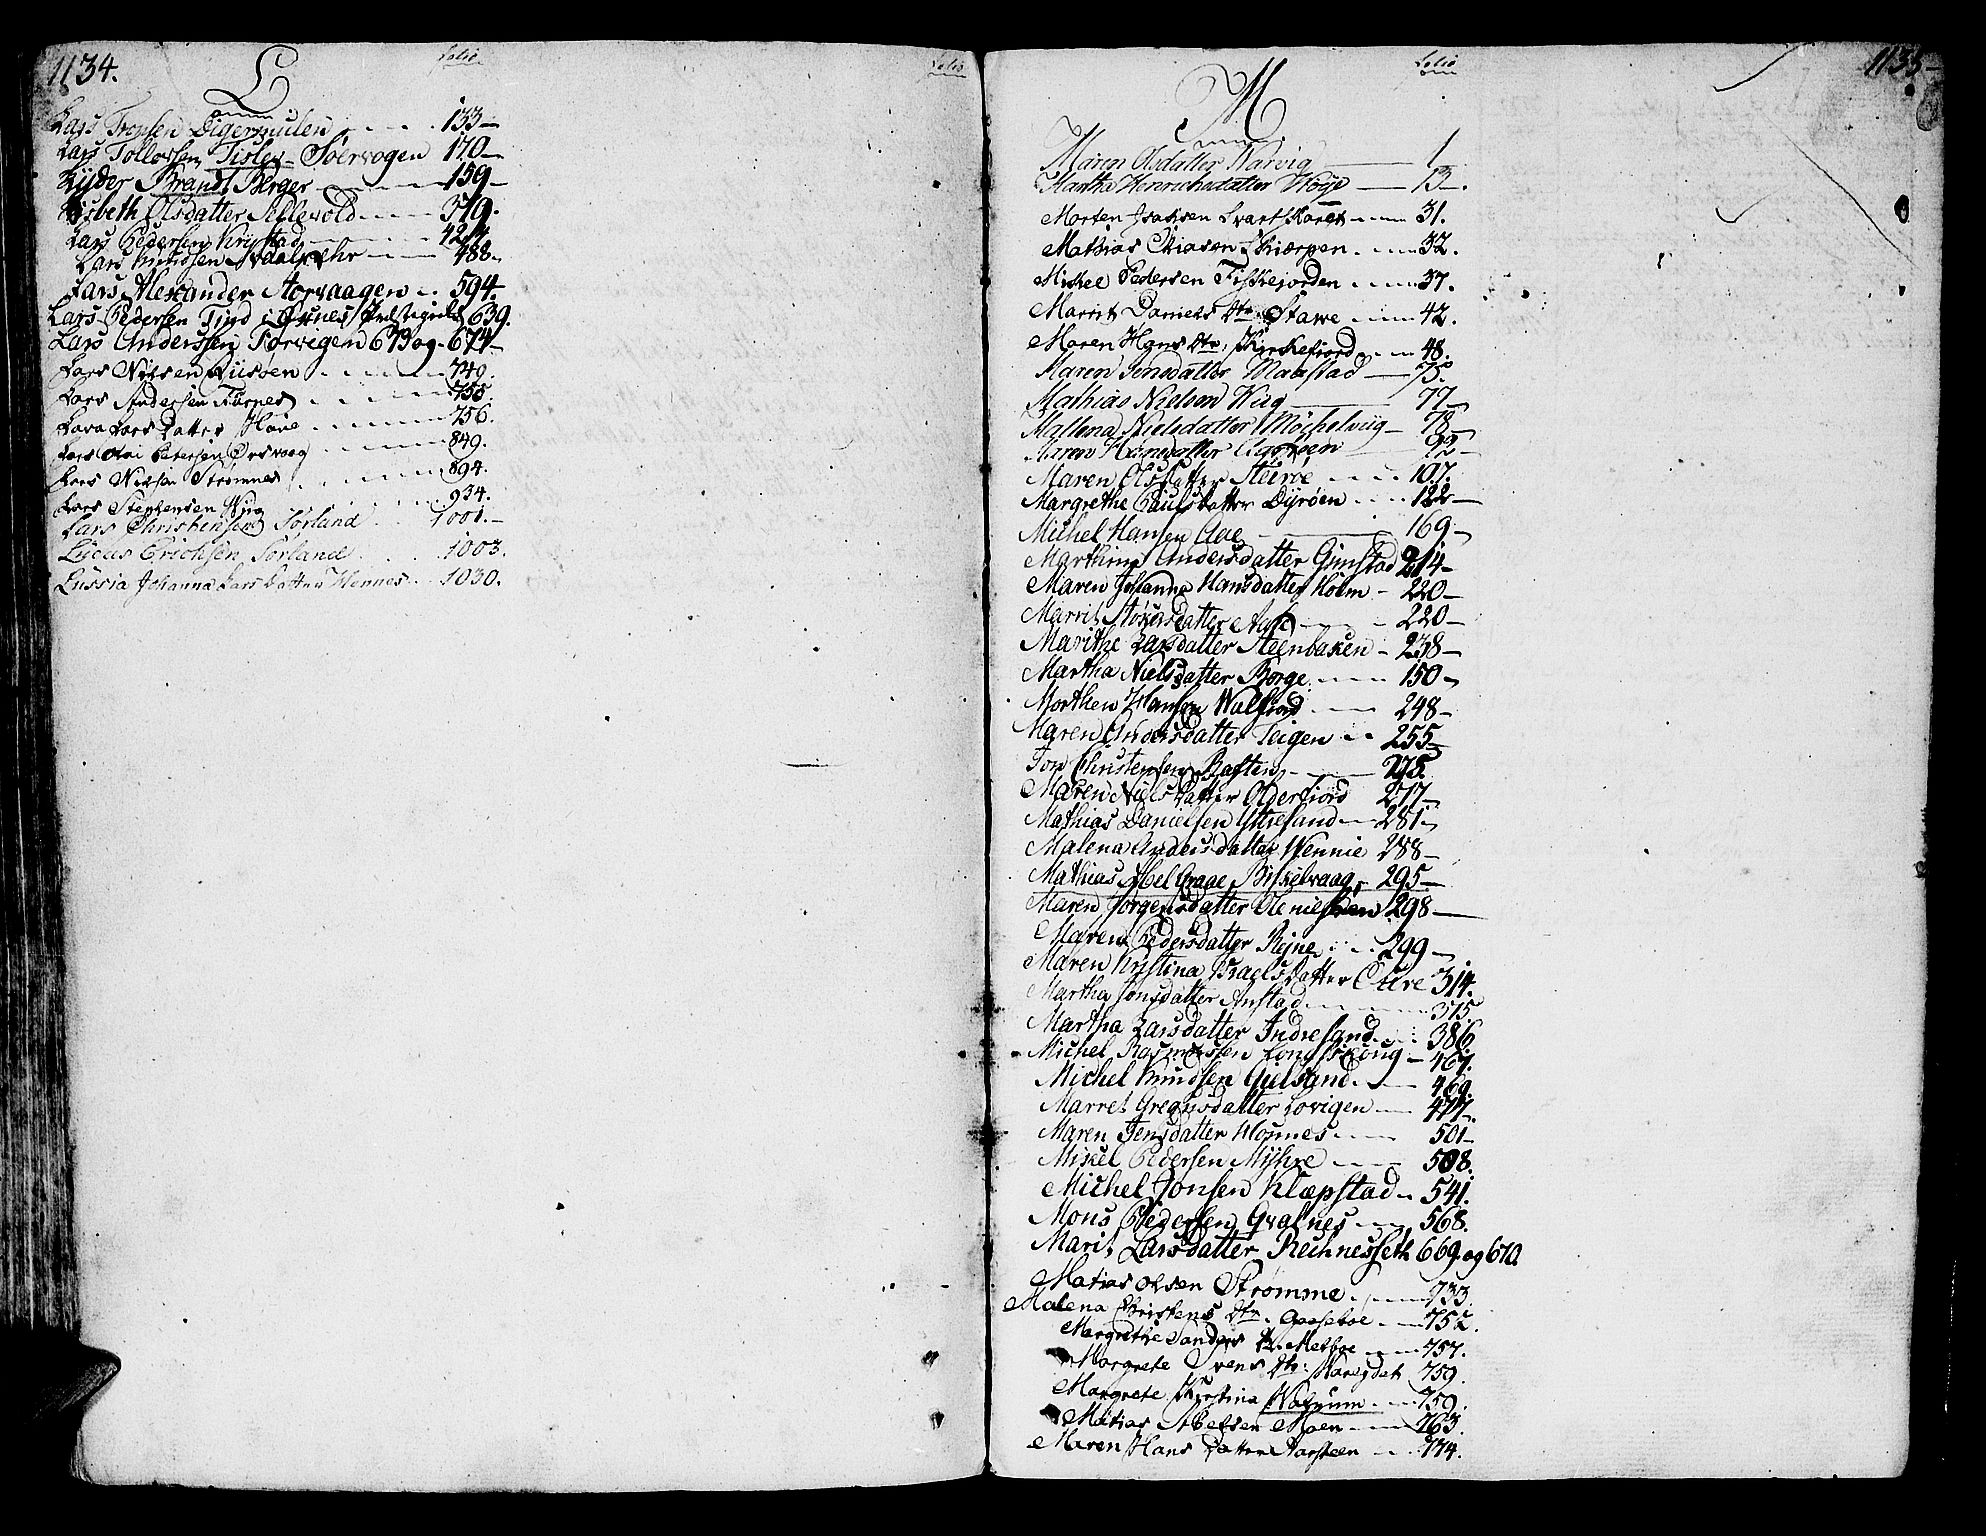 1134.
L
Folio
Folio
Lars Digermulen 133
Lars Tollovsen Tisløv - Sørvogen 170
Ryder Brandt Berger 159
Lisbeth Olsdatter Sellevold 379.
Lars Pedersen Krÿstad 424.
Lars Knudsen 488
Lars Alexander Storvaagen 594
Lars Pedersen Tind i Præstegield 639.
Lars Anderssen Torvigen 673 og 674
Lars Nilsen 749.
Lars Andersen 755.
Lara Lars Datter 756.
Lars Olai Petersen Ørsvaag 849.
Lars Nielsen Strømnes 894.
Lars Stephensen 934.
Lars Christensen Sørland 1001.
Lucas Erichsen Sørland 1003.
Lussia Johanna Larsdatter Hennes 1030.
1135
M
Folio
Maren Olsdatter Narvig 1
Martha Henrichsdatter 13.
Morten Isaksen Svartskaret 31.
Mathias Skierpen 32.
Mickel Pedersen Fiskejorden 37.
Marrit Daniels Dtr Stawe 42.
Maren Hans Dtr, Kirkefiord 48.
Maren Jensdatter 75.
Mathias Nielsen 77
Mallena Nielsdatter 78
Maren Hansdatter 92
Maren Olsdatter Steiroe 107.
Margrethe Paulsdatter Dyrøen 122
Michel Hansen Aae 169
Marthine Andersdatter Gimstad 214
Maren Johanna Hansdatter Holm 220
Marrit 220
Marithe Larsdatter Steenbaken 238
Martha Nielsdatter Borge 150
Morthen Hansen Walfiord 248
Maren Andersdatter Teigen 255
Jon Christensen Raften 275.
Maren Nielsdatter Olderfiord 277
Mathias Danielsen Yttresand 281
Malena Andersdatter Wennie 288
Mathias Abel Graae, Riskelvaag 295
Maren Jørgensdatter 298
Maren Pedersdatter Reine 299
Maren Kristina Israelsdatter Eure 314.
Martha Jonsdatter Anstad 375.
Martha Larsdatter Indresand 386
Michel Rasmussen 467.
Michel Knudsen 469.
Marret Lovigen 477.
Maren Jensdatter Hopnes 501
Mikel Pedersen Myhre 508.
Michel Jonsen Klæpstad 541.
Mons Pedersen Qvalnes 568.
Marit Larsdatter Rechnesseth 669. og 670.
Matias Olsen Strømme 733.
Malena Christens Dtr. Gaaseboe 752.
Margrethe 757.
Margrete Ivens Dtr: 759.
Margrete Kirstina 759.
Matias Moen 763.
Maren Hans Datter Aarsteen 774.